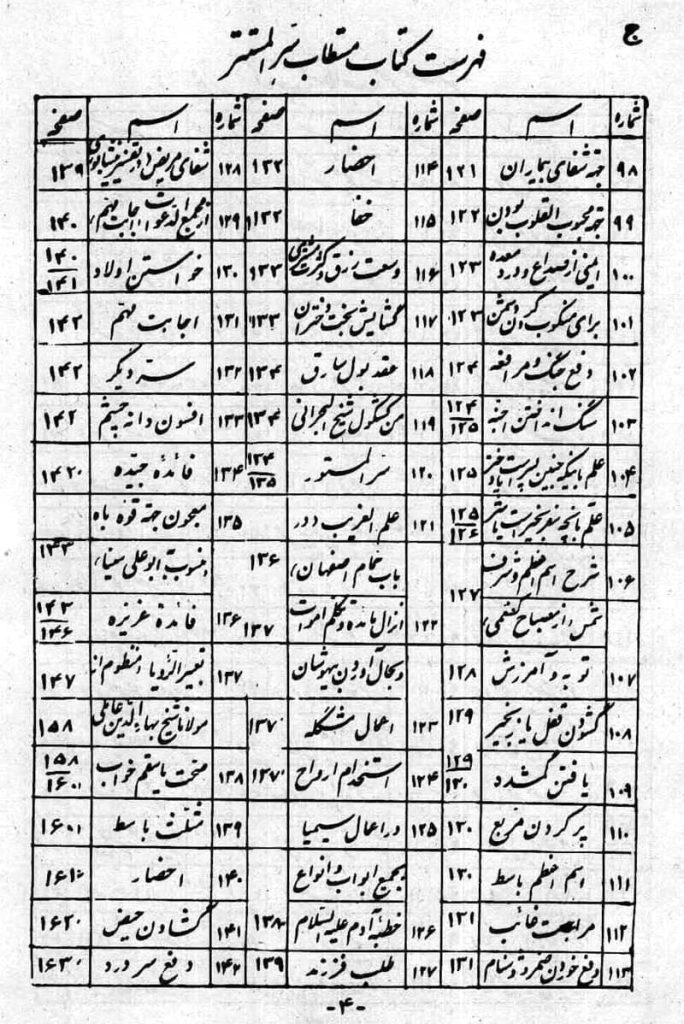 ج
فهرست کتاب مستطاب سر المستتر
شماره اسم صفحه شماره اسم صفحه شماره اسم صفحه
۹۸ جهة شفای بیماران ۱۲۱ ۱۱۴ احضار ۱۳۲ ۱۲۸ شفای مریض ۱۳۹
۹۹ جهة محبوب القلوب بودن ۱۲۲ ۱۱۵ خفا ۱۳۲ ۱۲۹ از مجمع الدعوات اجابت مهم ۱۴۰
۱۰۰ ایمنی از صداع و درد معده ۱۲۳ ۱۱۶ وسعت رزق و ۱۳۳ ۱۳۰ خواستن اولاد ۱۴۰ ۱۴۱
۱۰۱ برای منکوب کردن دشمن ۱۲۳ ۱۱۷ گشایش بخت دختران ۱۳۳ ۱۳۱ اجابت مهم ۱۴۲
۱۰۲ دفع جنگ و مرافعه ۱۲۴ ۱۱۸ عقد بول سارق ۱۳۴ ۱۳۲ ستر دیگر ۱۴۲
۱۰۳ سنگ انداختن اجنه ۱۲۴ ۱۲۵ ۱۱۹ من کشکول شیخ البحرانی ۱۳۴ ۱۳۳ افسون دانه چشم ۱۴۲
۱۰۴ علم باینکه جنین پسر است یا دختر ۱۲۵ ۱۲۰ سر المستور ۱۳۴ ۱۳۵ ۱۳۴ فائدة جیده ۱۴۲
۱۰۵ علم بآنچه ۱۲۵ ۱۲۶ ۱۲۱ علم الغریب در ۱۳۵ معجون جهة قوه باه
۱۰۶ شرح اسم اعظم و شرف ۱۲۷ باب حمام اصفهان ۱۳۶ منسوب بابوعلی سینا ۱۴۳
شمس از مصباح کفعمی ۱۲۲ انزال مائده و تکلم اموات ۱۳۷ ۱۳۶ فائدة عزیزه ۱۴۳ ۱۴۶
۱۰۷ توبه و آمرزش ۱۲۸ و بحال آوردن بیهوشان ۱۳۷ تعبیر الرویا منظوم از ۱۴۷
۱۰۸ گشودن قفل یا زنجیر ۱۲۹ ۱۲۳ اعمال مشکله ۱۳۷ مولانا شیخ بهاء الدین عاملی ۱۵۸
۱۰۹ یافتن گمشده ۱۲۹ ۱۳۰ ۱۲۴ استخدام ارواح ۱۳۷ ۱۳۸ صحت یا سقم خواب ۱۵۸ ۱۶۰
۱۱۰ پر کردن مربع ۱۳۰ ۱۲۵ در اعمال سیمیا ۱۳۹ مثلث باسط ۱۶۰
۱۱۱ اسم اعظم باسط ۱۳۰ بجمیع ابواب و انواع ۱۴۰ احضار ۱۶۱
۱۱۲ مراجعت غائب ۱۳۱ ۱۲۶ خطبه آدم علیه السلام ۱۳۸ ۱۴۱ گشادن حیض ۱۶۲
۱۱۳ دفع خوردن ۱۳۱ ۱۲۷ طلب فرزند ۱۳۹ ۱۴۲ دفع سر درد ۱۶۳
-۴-